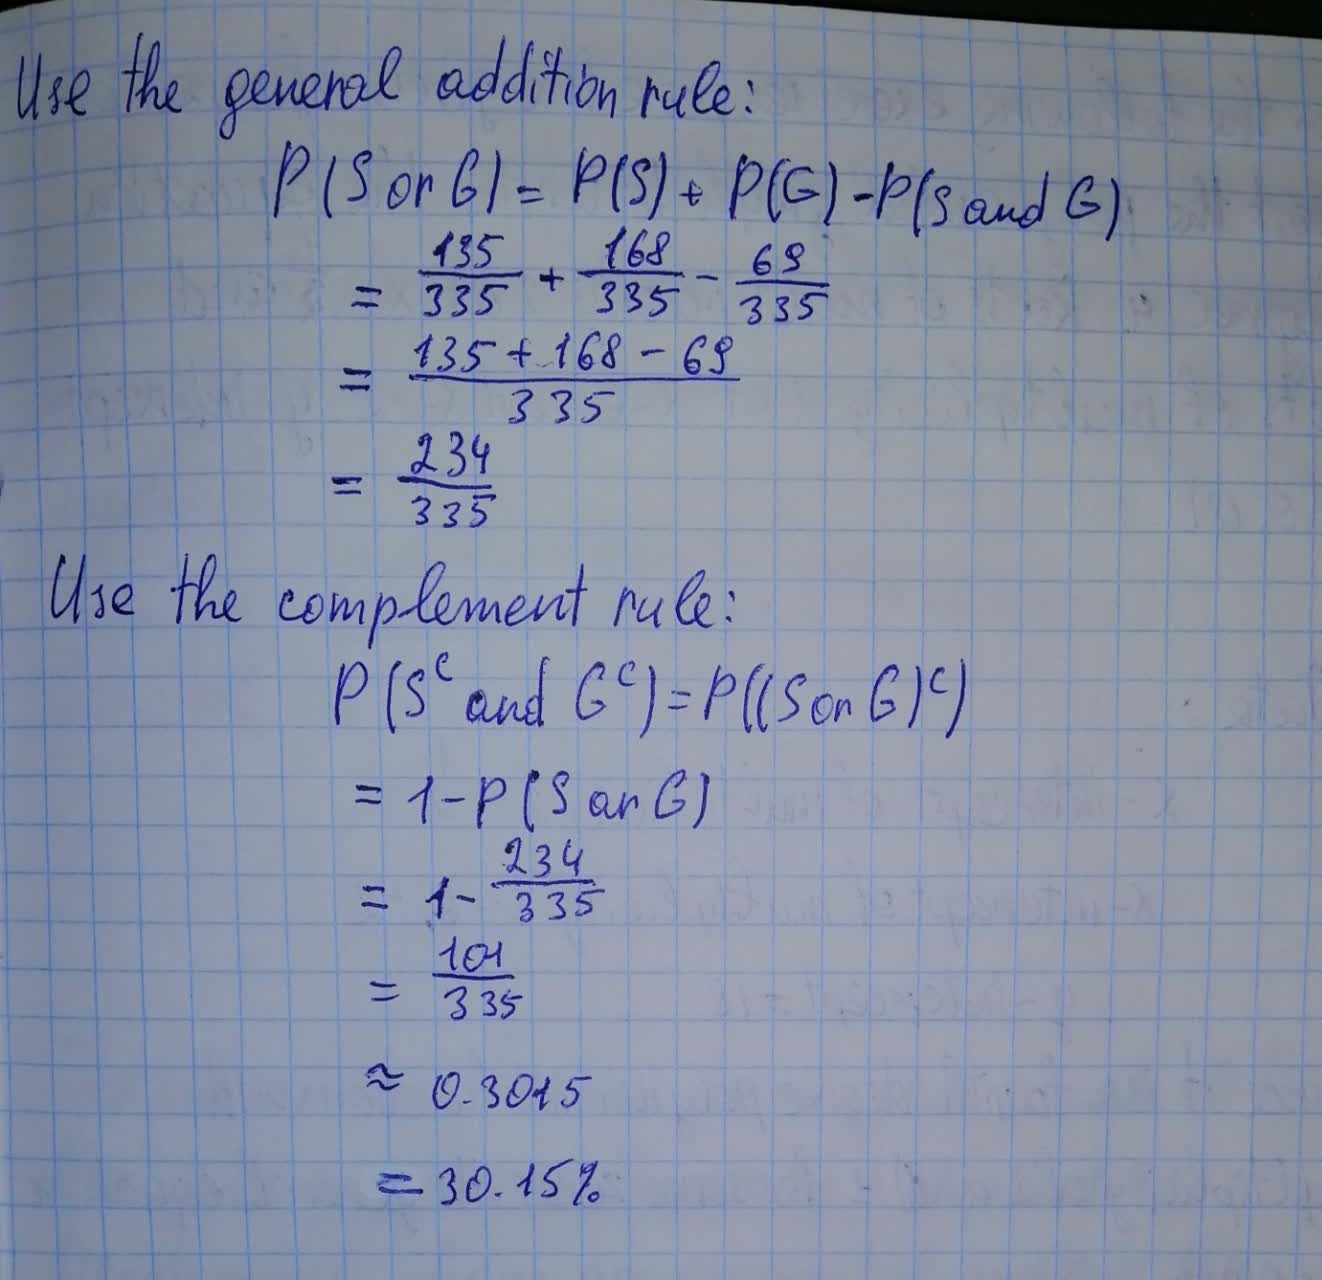 Use the general addition rule:
P(S or G) = P(S) + P(G) - P(S and G)
= 135/335 + 168/335 - 69/335
= (135 + 168 - 69)/335
= 234/335
Use the complement rule:
P(Sᶜ and Gᶜ) = P((S or G)ᶜ)
= 1 - P(S or G)
= 1 - 234/335
= 101/335
≈ 0.3015
= 30.15%